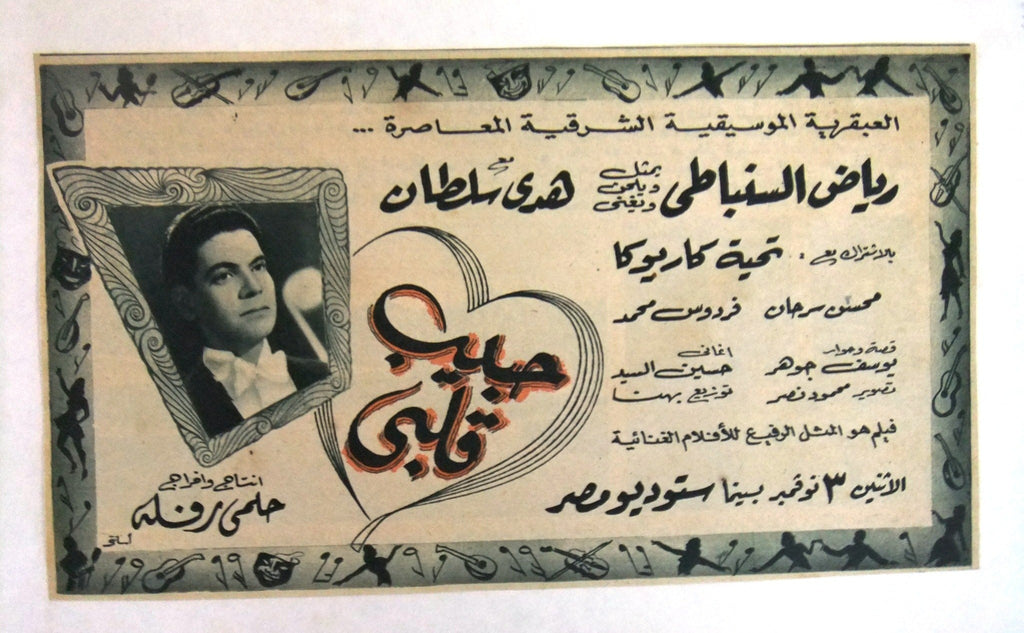 العبقرية الموسيقية الشرقية المعاصرة ...
رياض السنباطى يمثل ويلحن ويغنى مع هدى سلطان
بالاشتراك مع : تحية كاريوكا
محسن سرحان فردوس محمد
قصة وحوار يوسف جوهر اغانى حسين السيد
تصوير محمود نصر توزيع بهنا
فيلم هو المثل الرفيع للأفلام الغنائية
الأثنين ٣ نوفمبر بسينما ستوديو مصر
حبيب
قلبى
انتاج وافراج
حلمى رفله